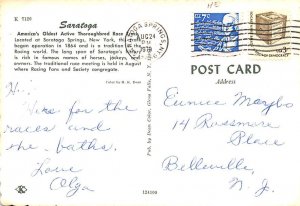 K 7120
Saratoga
America's Oldest Active Thoroughbred Race Track
Located at Saratoga Springs, New York, this
began operation in 1864 and is a tradition in the
World. The long season of Saratoga's history
is rich in famous names of horses, jockeys, and
The traditional race meeting is held in August
where Racing Fans and Society congregate.
Color by
SARATOGA SPRINGS, N.Y.
AUG 24
PM
POST CARD
Address
Hi..
Here for the
races and
the baths.
Love
Olga
Pub. by Dean Color, Glens Falls, N. Y.
Eunice
14 Rossmore
Place
Belleville,
N. J.